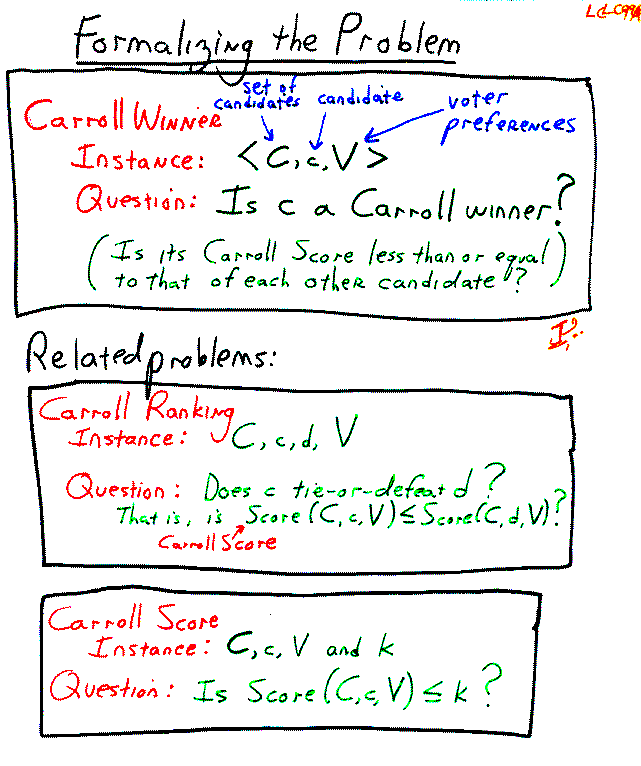 Formalizing the Problem
set of
candidates candidate voter
preferences
Carroll Winner
Instance: <C, c, V>
Question: Is c a Carroll winner?
(Is its Carroll Score less than or equal
to that of each other candidate?)
Related problems:
Carroll Ranking
Instance: C, c, d, V
Question: Does c tie-or-defeat d?
That is, is Score(C, c, V) ≤ Score(C, d, V)?
Carroll Score
Carroll Score
Instance: C, c, V and k
Question: Is Score(C, c, V) ≤ k?